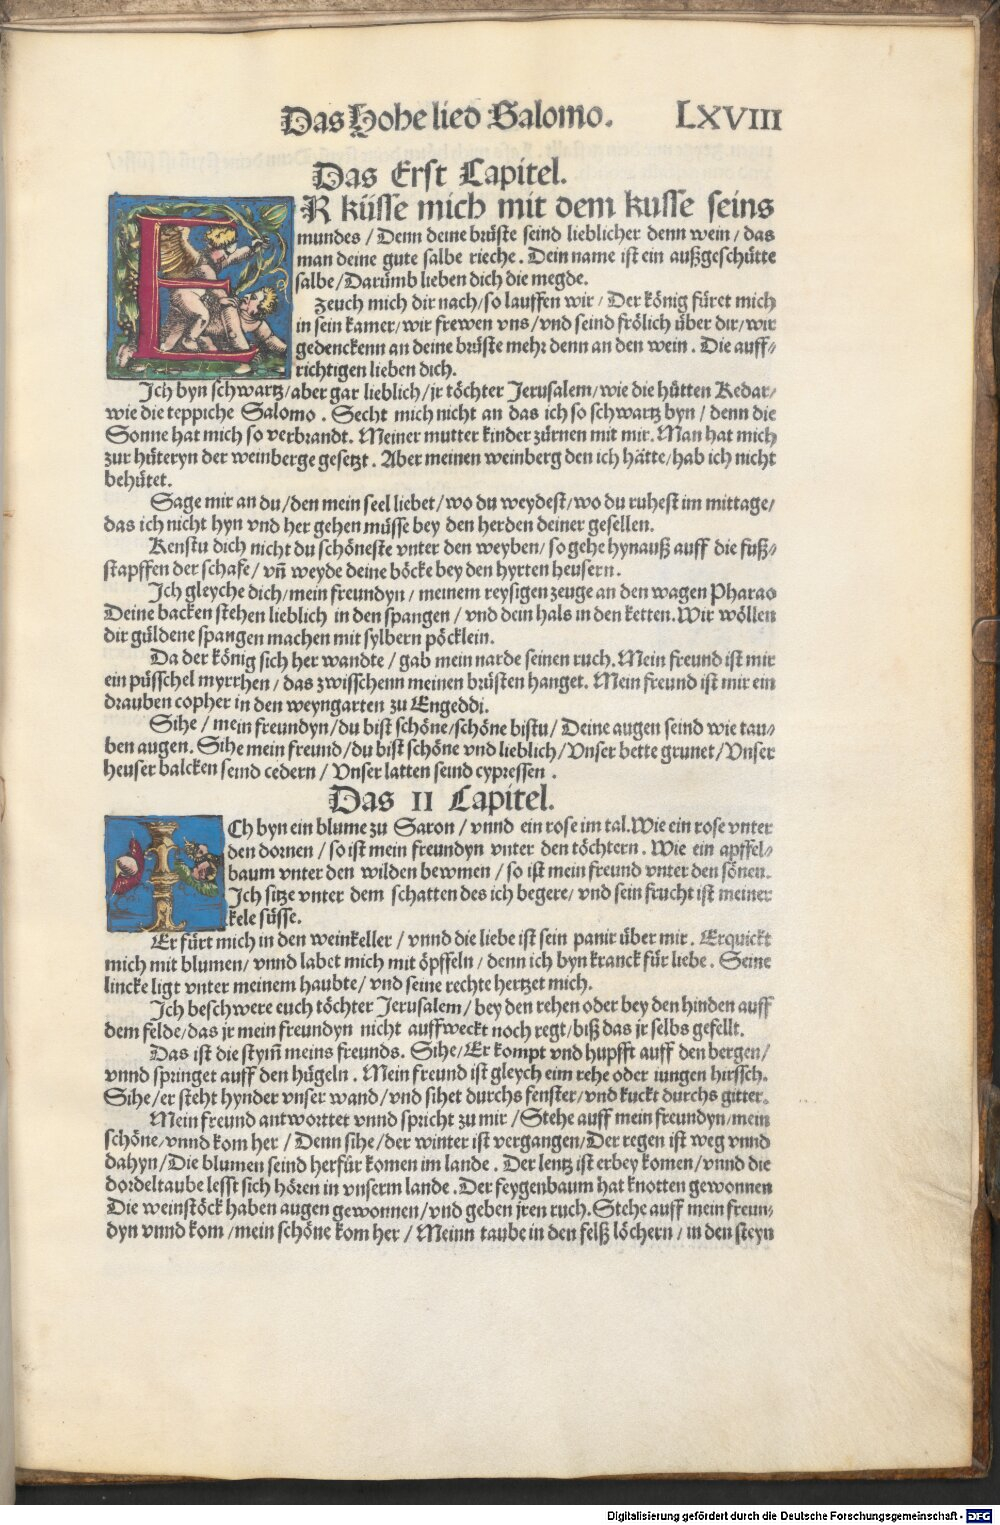 Das Hohe lied Salomo. LXVIII
Das Erst Capitel.
ER küsse mich mit dem kusse seins
mundes / Denn deine brüste seind lieblicher denn wein / das
man deine gute salbe rieche . Dein name ist ein außgeschütte
salbe / Darümb lieben dich die megde.
Zeuch mich dir nach / so lauffen wir / Der könig füret mich
in sein kamer / wir frewen vns / vnd seind frölich über dir / wir
gedenckenn an deine brüste mehr denn an den wein . Die auff⸗
richtigen lieben dich.
Ich byn schwartz / aber gar lieblich / jr töchter Jerusalem / wie die hütten Kedar /
wie die teppiche Salomo . Secht mich nicht an das ich so schwartz byn / denn die
Sonne hat mich so verbrandt. Meiner mutter kinder zürnen mit mir. Man hat mich
zur hüteryn der weinberge gesetzt . Aber meinen weinberg den ich hätte / hab ich nicht
behütet.
Sage mir an du / den mein seel liebet / wo du weydest / wo du ruhest im mittage /
das ich nicht hyn vnd her gehen müsse bey den herden deiner gesellen.
Kenstu dich nicht du schöneste vnter den weyben / so gehe hynauß auff die fuß⸗
stapffen der schafe / vñ weyde deine böcke bey den hyrten heusern .
Ich gleyche dich / mein freundyn / meinem reysigen zeuge an den wagen Pharao
Deine backen stehen lieblich in den spangen / vnd dein hals in den ketten. Wir wöllen
dir güldene spangen machen mit sylbern pöcklein.
Da der könig sich her wandte / gab mein narde seinen ruch. Mein freund ist mir
ein püsschel myrrhen / das zwisschenn meinen brüsten hanget. Mein freund ist mir ein
drauben copher in den weyngarten zu Engeddi.
Sihe / mein freundyn / du bist schöne / schöne bistu / Deine augen seind wie tau⸗
ben augen. Sihe mein freund / du bist schöne vnd lieblich / Vnser bette grunet / Vnser
heuser balcken seind cedern / Vnser latten seind cypressen .
Das II Capitel.
ICh byn ein blume zu Saron / vnnd ein rose im tal. Wie ein rose vnter
den dornen / so ist mein freundyn vnter den töchtern . Wie ein apffel⸗
baum vnter den wilden bewmen / so ist mein freund vnter den sönen.
Ich sitze vnter dem schatten des ich begere / vnd sein frucht ist meiner
kele süsse.
Er fürt mich in den weinkeller / vnnd die liebe ist sein panir über mir . Erquickt
mich mit blumen / vnnd labet mich mit öpffeln / denn ich byn kranck für liebe . Seine
lincke ligt vnter meinem haubte / vnd seine rechte hertzet mich.
Ich beschwere euch töchter Jerusalem / bey den rehen oder bey den hinden auff
dem felde / das jr mein freundyn nicht auffweckt noch regt / biß das jr selbs gefellt.
Das ist die stym̃ meins freunds. Sihe / Er kompt vnd hupfft auff den bergen /
vnnd springet auff den hügeln . Mein freund ist gleych eim rehe oder iungen hirssch.
Sihe / er steht hynder vnser wand / vnd sihet durchs fenster / vnd kuckt durchs gitter.
Mein freund antworttet vnnd spricht zu mir / Stehe auff mein freundyn / mein
schöne / vnnd kom her / Denn sihe / der winter ist vergangen / Der regen ist weg vnnd
dahyn / Die blumen seind herfür komen im lande . Der lentz ist erbey komen / vnnd die
dordeltaube lesst sich hören in vnserm lande . Der feygenbaum hat knotten gewonnen
Die weinstöck haben augen gewonnen / vnd geben jren ruch. Stehe auff mein freun⸗
dyn vnnd kom / mein schöne kom her / Meinn taube in den felß löchern / in den steyn
Digitalisierung gefördert durch die Deutsche Forschungsgemeinschaft - DFG